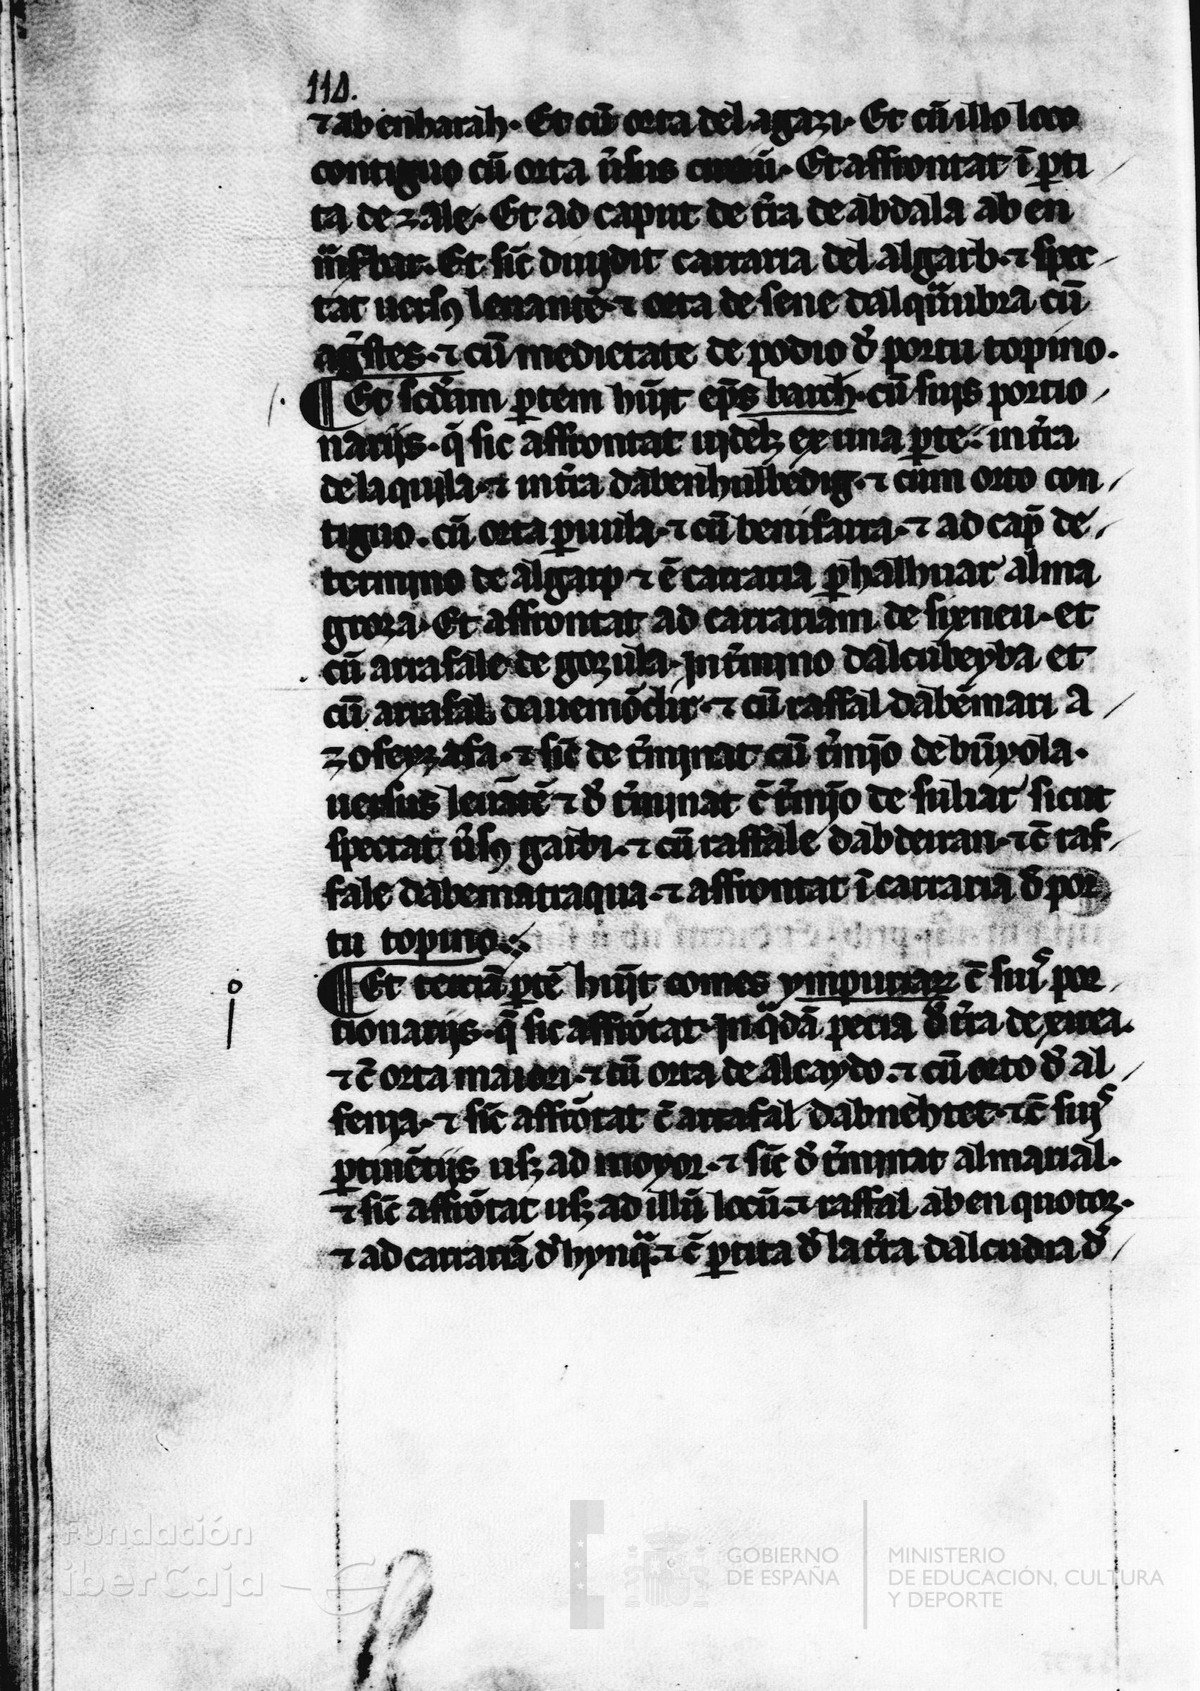 114.
⁊ abenharah. Et cū orta del agazi. Et cū illo loco
contiguo cū orta ṽsus Et affrontat ī ꝑti
ta de zale. Et ad caput de t̃ra de abdala aben
Et sic̄ diuidit carraria del algarb. ⁊ spec
tat uersꝰ leuantē. ⁊ orta de sene cū
⁊ cū medietate de podio d̕ portu topino.
¶ Et scd̕am ꝑtem hn̄t ep̄s barch. cū suis portio
nariis. q̄ sic affrontat uidelꝫ ex una ꝑte. in t̃ra
de laquila. ⁊ in t̃ra ⁊ cum orto con
tiguo. cū orta ꝑuula. ⁊ cū benifarra. ⁊ ad cap̄ de
termino de algarp ⁊ ē carraria ꝑ halhuar alma
groza. Et affrontat ad carrariam de sixneu. et
cū arrafale de gozula. in t̃mino dalcubeyba et
cū arrafal ⁊ cū raffal dabēmari a
⁊ sic̄ de t̃minat cū t̃mio de būyola.
uersus leuātē ⁊ d̕ t̃minat c̄ t̃mio de suliar sicut
spectat ṽsꝰ garbi. ⁊ cū raffale dabdeiran. ⁊ c̄ raf
fale ⁊ affrontat ī carraria d̕ por
tu topino.
¶ Et terciā ꝑtē hn̄t comes ympuriaꝝ c̄ suis por
tionariis. q̄ sic affrōtat. in q̄dā pecia d̕ t̃ra de exuea.
⁊ c̄ orta maiori. ⁊ cū orta de alcaydo. ⁊ cū orto d̕ al
fenia. ⁊ sic̄ affrōtat c̄ arrafal dabnehtet. ⁊ c̄ suis
ꝑtinētiis usꝫ ad moyor. ⁊ sic̄ d̕ t̃minat almarial.
⁊ sic̄ affrōtat usꝫ ad illū locū. ⁊ raffal aben quotoz.
⁊ ad carrariā d̕ hynq̄. ⁊ c̄ ꝑtita d̕ la t̃ra dalcudia d̕
Fundación
iberCaja
GOBIERNO
DE ESPAÑA
MINISTERIO
DE EDUCACIÓN, CULTURA
Y DEPORTE